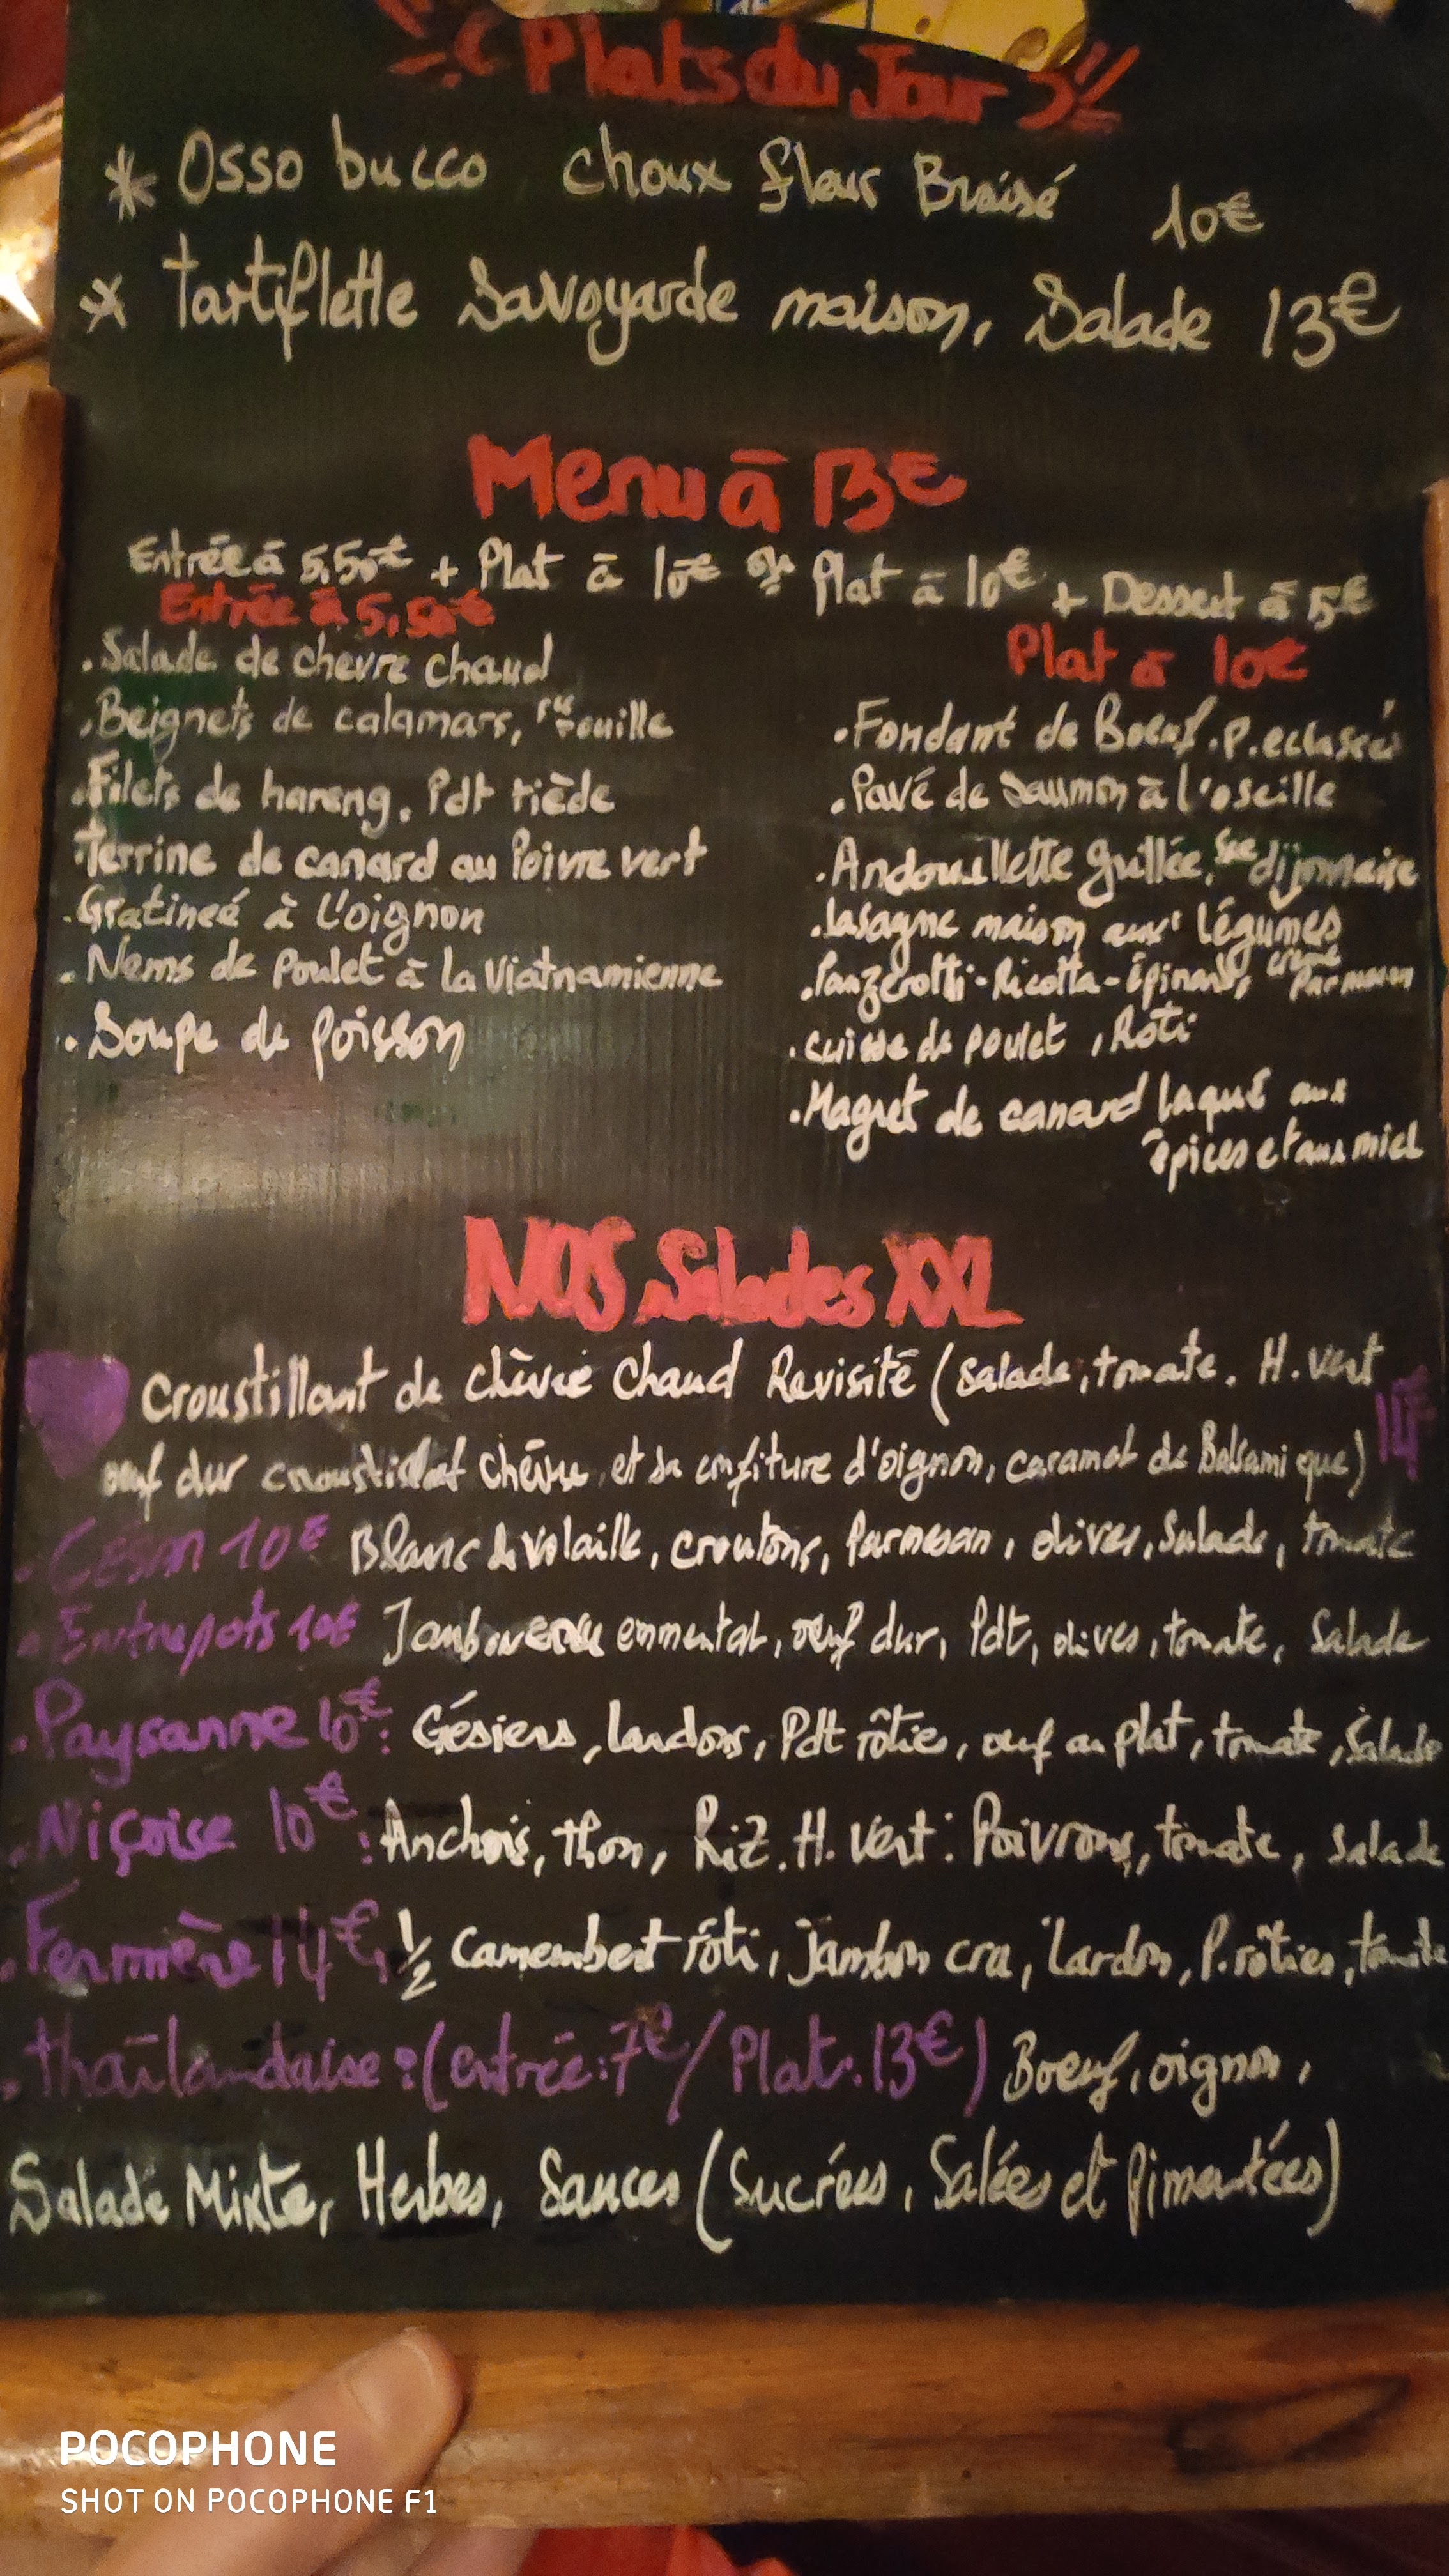 Plats du Jour
* Osso bucco choux fleur Braisé 10€
* Tartiflette Savoyarde maison, Salade 13€
Menu à 13€
Entrée à 5,50€ + Plat à 10€ ou Plat à 10€ + Dessert à 5€
Entrée à 5,50€
. Salade de chevre chaud
. Beignets de calamars, rouille
. Filets de hareng, Pdt tiède
. Terrine de canard au Poivre vert
. Gratineé à L'oignon
. Nems de Poulet à la Viatnamienne
. Soupe de poisson
Plat à 10€
. Fondant de Boeuf, P. eclasées
. Pavé de Saumon à l'oseille
. Andouillette grillée, sce dijonnaise
. lasagne maison aux légumes
. Panzerotti-Ricotta-Epinards, crème Parmesan
. cuisse de poulet, Roti
. Magret de canard laqué aux
épices et aux miel
NOS Salades XXL
Croustillant de chèvre Chaud Revisité (Salade, tomate, H. vert
œuf dur croustillant chèvre, et sa confiture d'oignon, caramel de Balsamique) 14€
. César 10€ Blanc de Volaille, croutons, Parmesan, olives, Salade, tomate
. Entrepots 10€ Jambon emmental, œuf dur, Pdt, olives, tomate, Salade
. Paysanne 10€: Gésiers, lardons, Pdt rôties, œuf au plat, tomate, Salade
. Niçoise 10€: Anchois, thon, Riz, H. Vert: Poivrons, tomate, Salade
. Fermière 14€, 1/2 Camembert rôti, jambon cru, lardon, P. rôties, tomate
. thaïlandaise: (entrée: 7€ / Plat: 13€) Boeuf, oignon,
Salade Mixte, Herbes, Sauces (Sucrées, Salées et Pimentées)
POCOPHONE
SHOT ON POCOPHONE F1